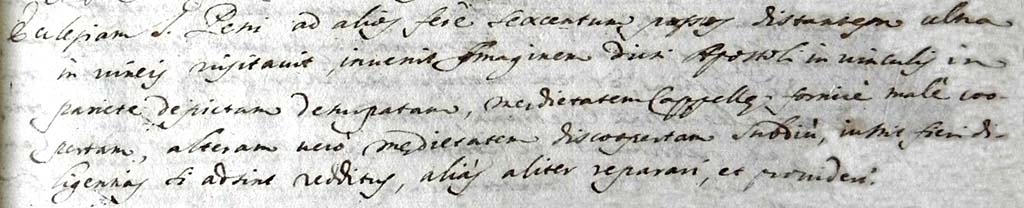 Ecclesiam S. Petri ad alios ferè sexcentum passus distantem ultra
in vineis visitavit, invenit Imaginem Divi Apostoli in vinculis in
pariete depictam deturpatam, medietatem Cappellę fornice malè coo-
pertam, alteram verò medietatem discoopertam subdiù, iussit fieri di-
ligentias si adsint redditus, aliàs aliter reparari, et provideri.